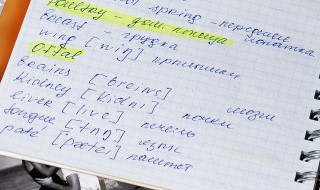 spring - передние
Poultry - дом. птица лопатка
breast - грудка
wing [wiŋ] крылышки
Offal
Brains [breins] мозги
Kidney [kidni] почки
Liver [live] печень
tongue [tʌŋ] язык
pate [pætei] паштет